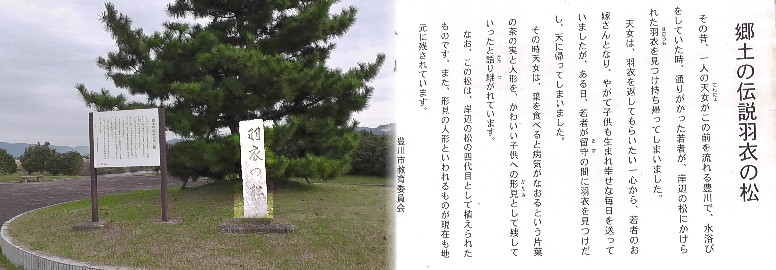 郷土の伝説羽衣の松
その昔、一人の天女がこの前を流れる豊川で、水浴び
をしていた時、通りがかった若者が、岸辺の松にかけら
れた羽衣を見つけ持ち帰ってしまいました。
天女は、羽衣を返してもらいたい一心から、若者のお
嫁さんとなり、やがて子供も生まれ幸せな毎日を送って
いましたが、ある日、若者が留守の間に羽衣を見つけだ
し、天に帰ってしまいました。
その時天女は、葉を食べると病気がなおるという片葉
の茶の実と人形を、かわいい子供への形見として残して
いったと語り継がれています。
なお、この松は、岸辺の松の四代目として植えられた
ものです。また、形見の人形といわれるものが現在も地
元に残されています。
豊川市教育委員会
羽衣の松